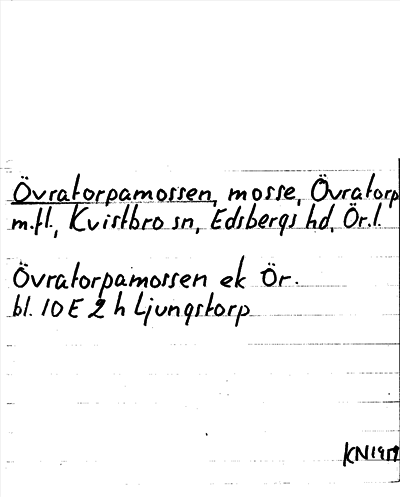 Övratorpamossen, mosse, Övratorp
m.fl., Kvistbro sn, Edsbergs hd, Ör.l.
Övratorpamossen ek Ör.
bl. 10 E 2 h Ljungstorp